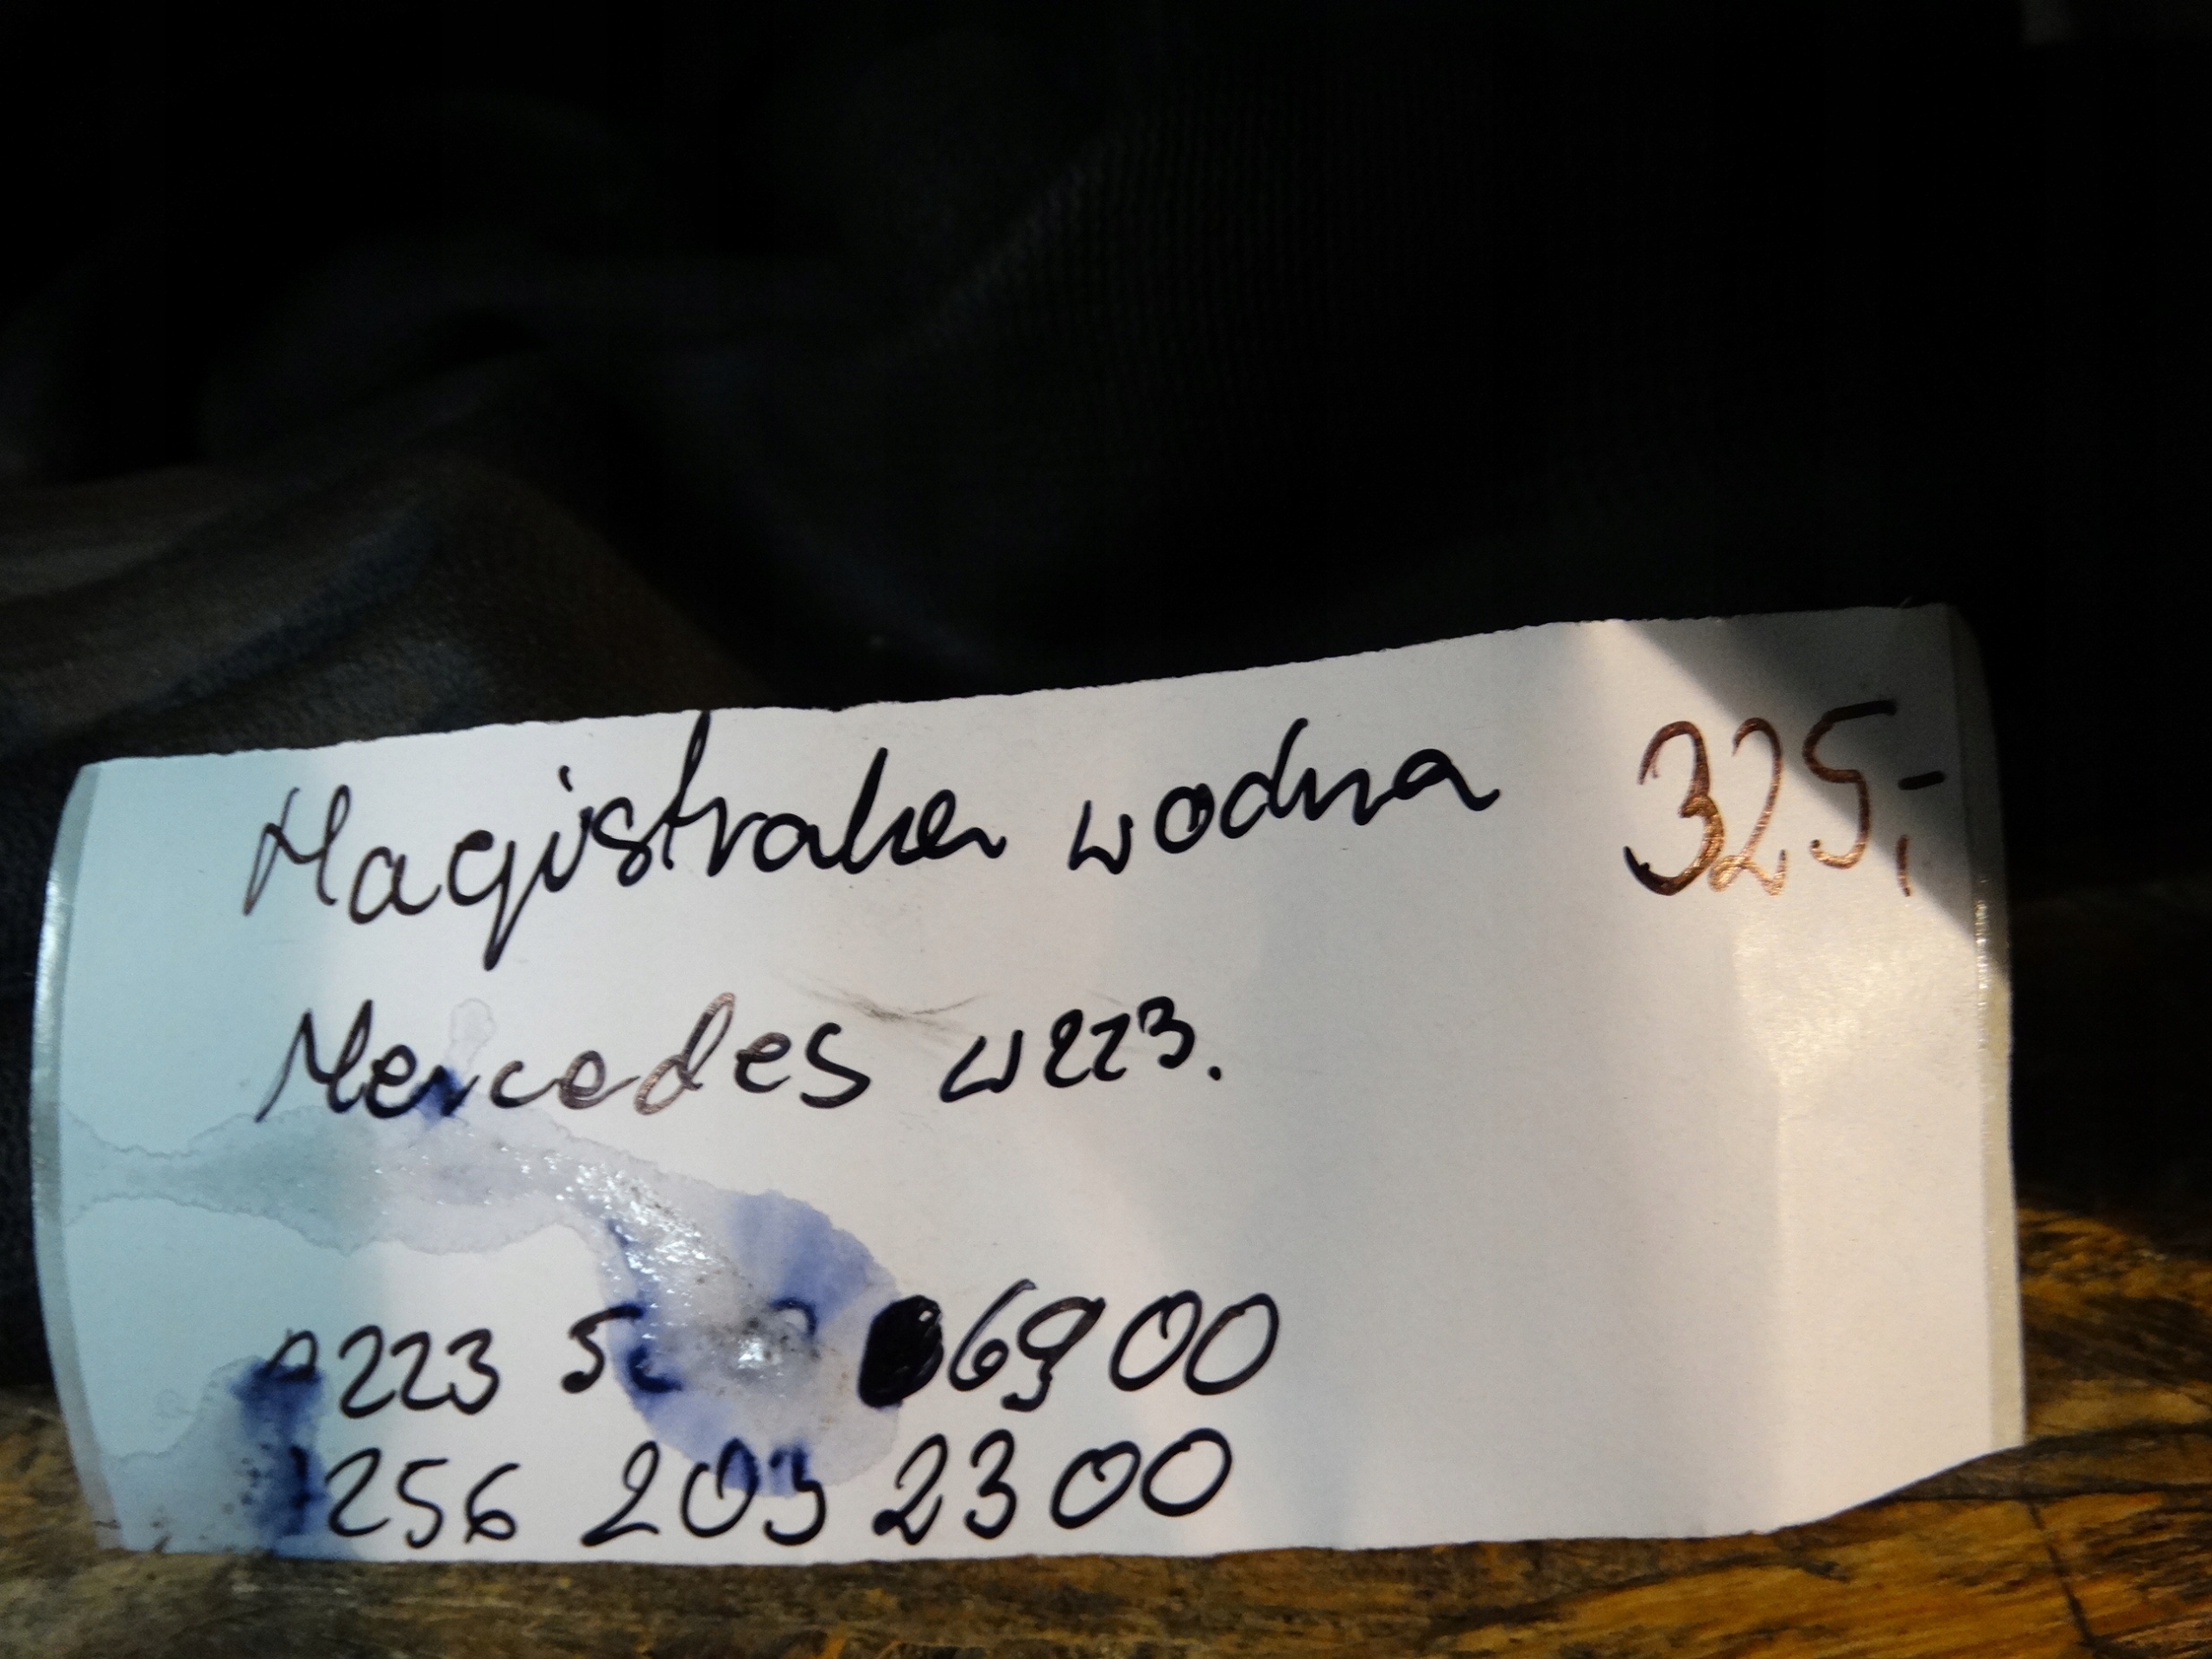 Magistrala wodna 325,-
Mercedes w223.
223 6900
256 203 2300